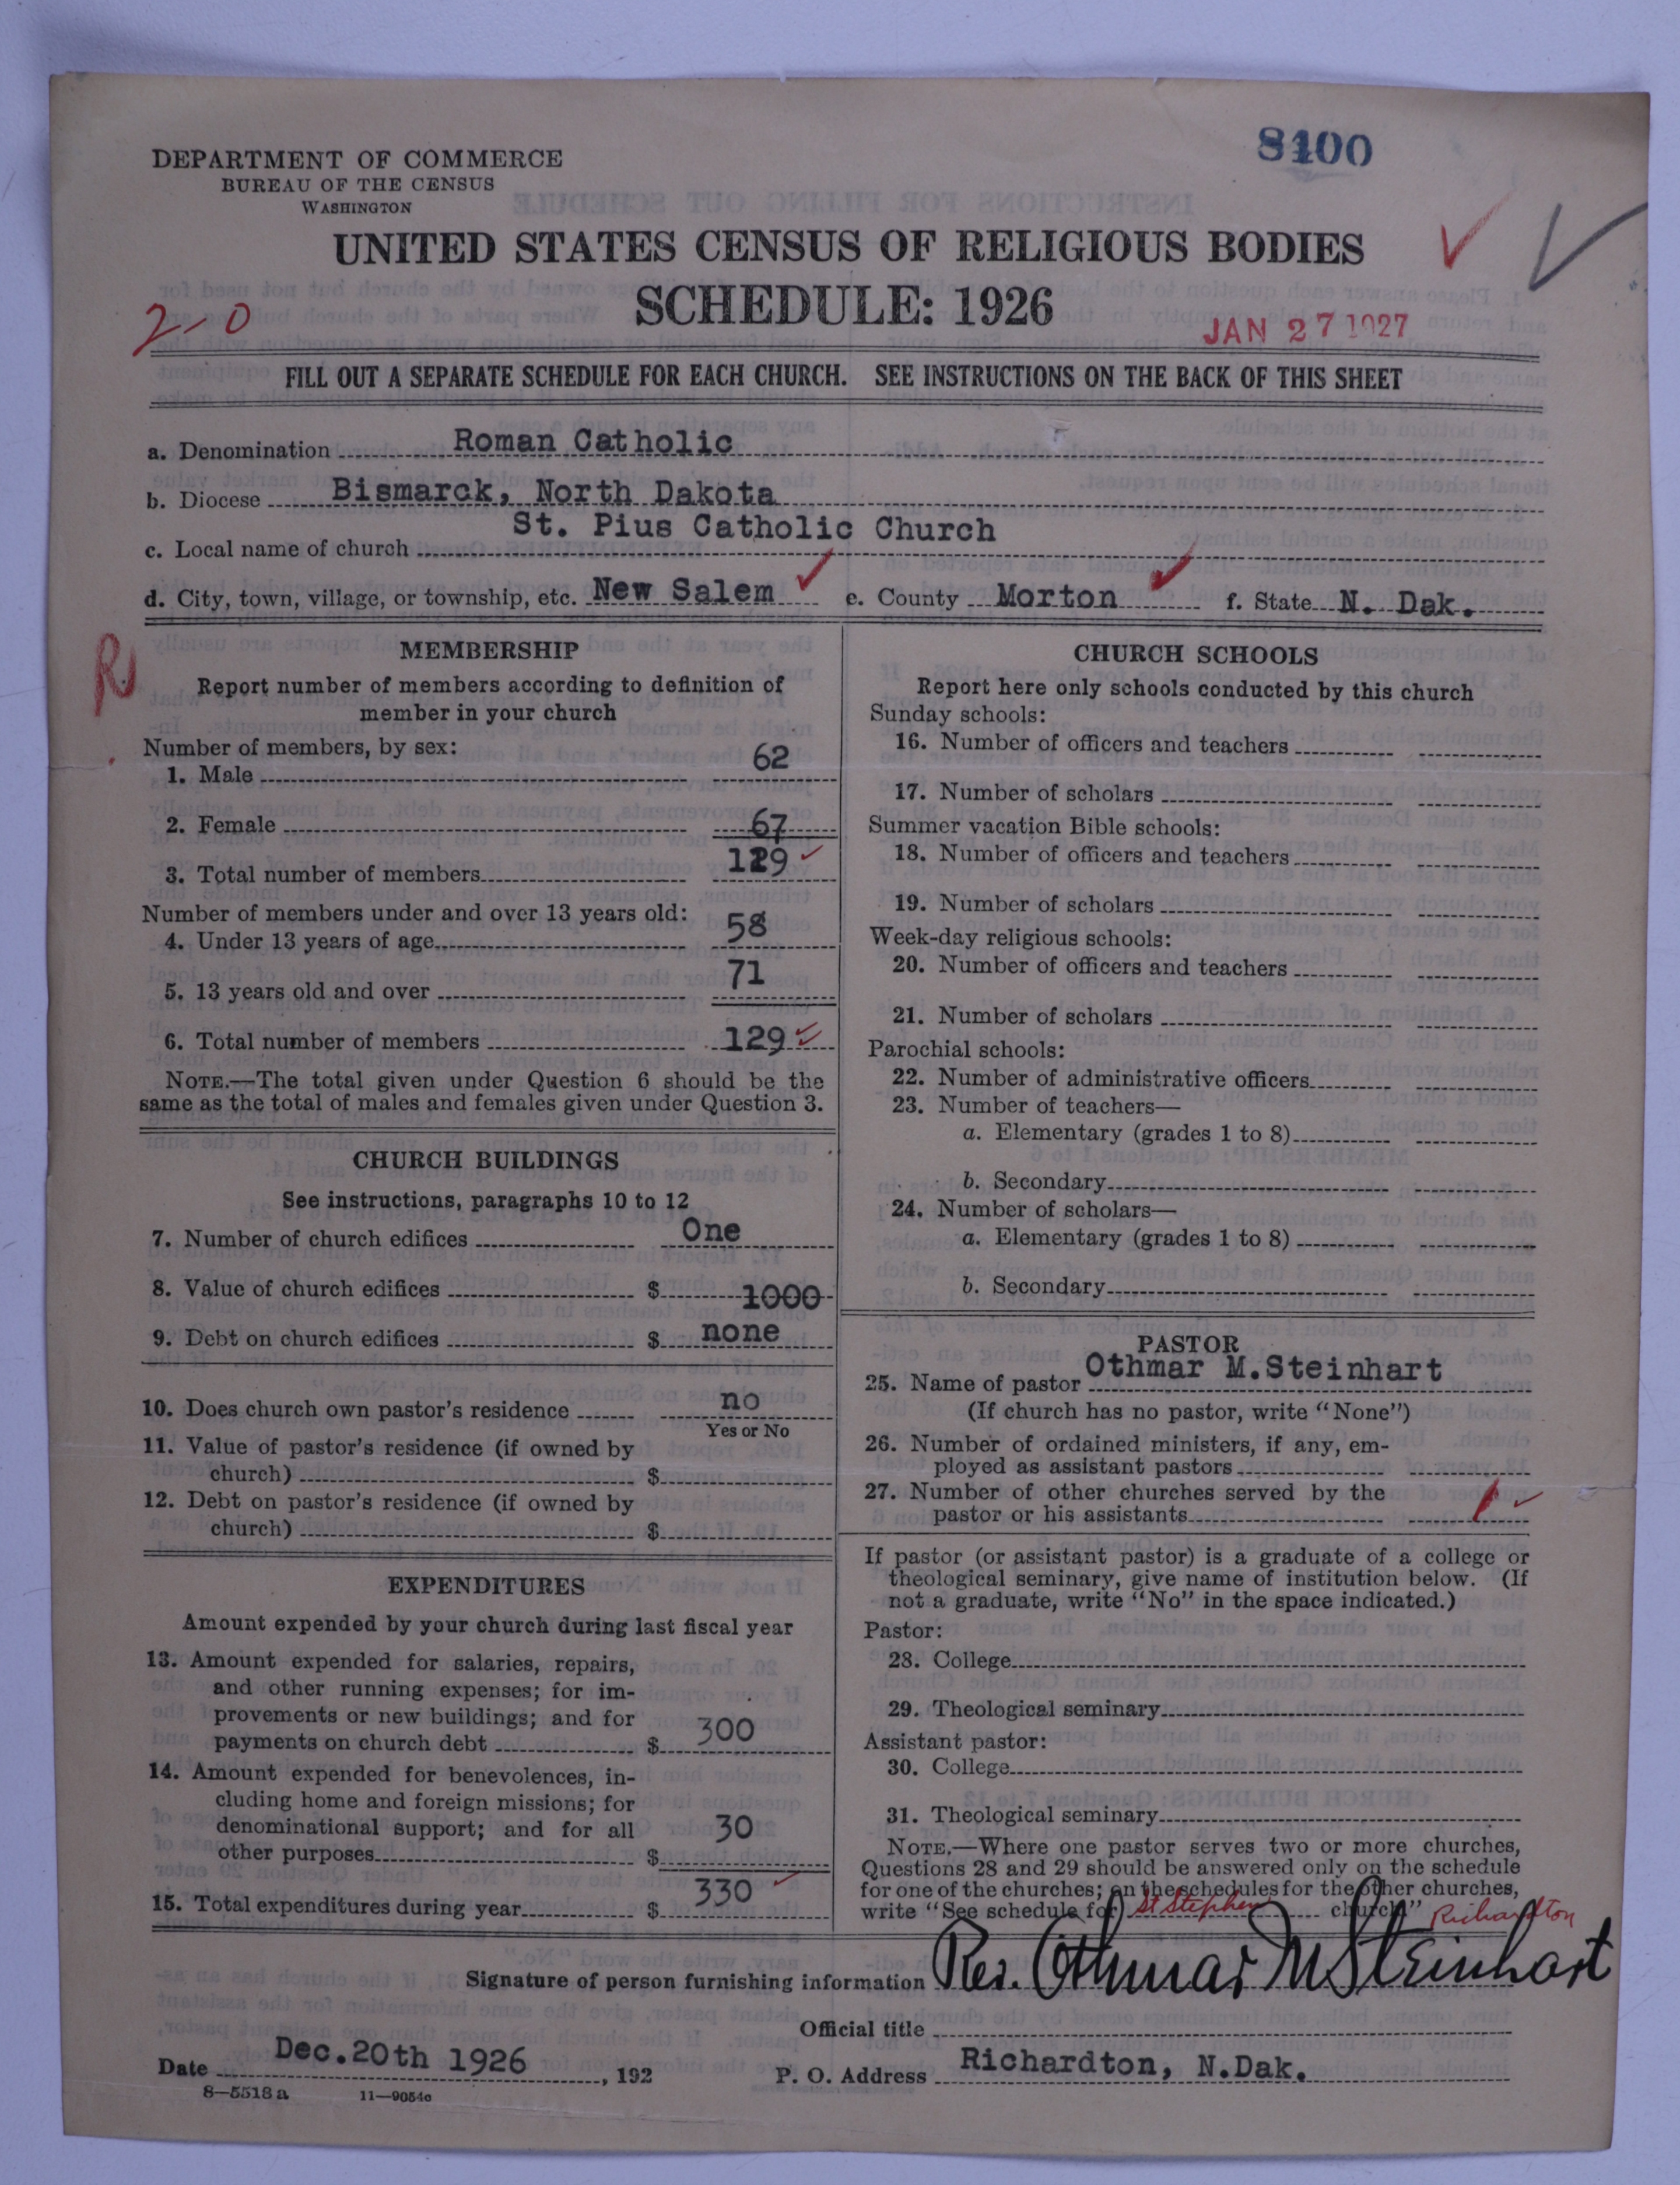 8100
DEPARTMENT OF COMMERCE
BUREAU OF THE CENSUS
WASHINGTON
UNITED STATES CENSUS OF RELIGIOUS BODIES
SCHEDULE: 1926
2-0
JAN 27 1927
FILL OUT A SEPARATE SCHEDULE FOR EACH CHURCH. SEE INSTRUCTIONS ON THE BACK OF THIS SHEET
a. Denomination Roman Catholic
b. Diocese Bismarck, North Dakota
c. Local name of church St. Pius Catholic Church
d. City, town, village, or township, etc. New Salem e. County Morton f. State N. Dak.
R
MEMBERSHIP
Report number of members according to definition of
member in your church
Number of members, by sex:
1. Male 62
2. Female 67
3. Total number of members 129
Number of members under and over 13 years old:
4. Under 13 years of age 58
5. 13 years old and over 71
6. Total number of members 129
NOTE.—The total given under Question 6 should be the
same as the total of males and females given under Question 3.
CHURCH BUILDINGS
See instructions, paragraphs 10 to 12
7. Number of church edifices One
8. Value of church edifices $ 1000
9. Debt on church edifices $ none
10. Does church own pastor's residence no
Yes or No
11. Value of pastor's residence (if owned by
church) $
12. Debt on pastor's residence (if owned by
church) $
EXPENDITURES
Amount expended by your church during last fiscal year
13. Amount expended for salaries, repairs,
and other running expenses; for im-
provements or new buildings; and for
payments on church debt $ 300
14. Amount expended for benevolences, in-
cluding home and foreign missions; for
denominational support; and for all
other purposes $ 30
15. Total expenditures during year $ 330
CHURCH SCHOOLS
Report here only schools conducted by this church
Sunday schools:
16. Number of officers and teachers
17. Number of scholars
Summer vacation Bible schools:
18. Number of officers and teachers
19. Number of scholars
Week-day religious schools:
20. Number of officers and teachers
21. Number of scholars
Parochial schools:
22. Number of administrative officers
23. Number of teachers—
a. Elementary (grades 1 to 8)
b. Secondary
24. Number of scholars—
a. Elementary (grades 1 to 8)
b. Secondary
PASTOR
25. Name of pastor Othmar M.Steinhart
(If church has no pastor, write "None")
26. Number of ordained ministers, if any, em-
ployed as assistant pastors
27. Number of other churches served by the
pastor or his assistants 1
If pastor (or assistant pastor) is a graduate of a college or
theological seminary, give name of institution below. (If
not a graduate, write "No" in the space indicated.)
Pastor:
28. College
29. Theological seminary
Assistant pastor:
30. College
31. Theological seminary
NOTE.—Where one pastor serves two or more churches,
Questions 28 and 29 should be answered only on the schedule
for one of the churches; on the schedules for the other churches,
write "See schedule for St Stephen church" Richardton
Signature of person furnishing information Rev. Othmar M Steinhart
Official title
Date Dec.20th 1926, 192 P. O. Address Richardton, N.Dak.
8—5518 a 11—9054c